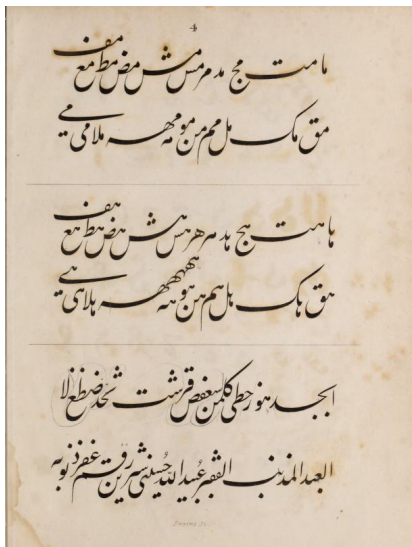 4
ما مت مج مد مر مس مش مض مط مع مف
مق مک مل مم من مو مه مهه ملا می مے
ها هت هج هد هر هس هش هض هط هع هف
هق هک هل هم هن هو هه هلا هی هے
ابجد هوز حطی کلمن سعفص قرشت ثخذ ضظغ لا
العبد المذنب الفقیر عبید الله حسینی شیرین رقم غفر ذنوبه